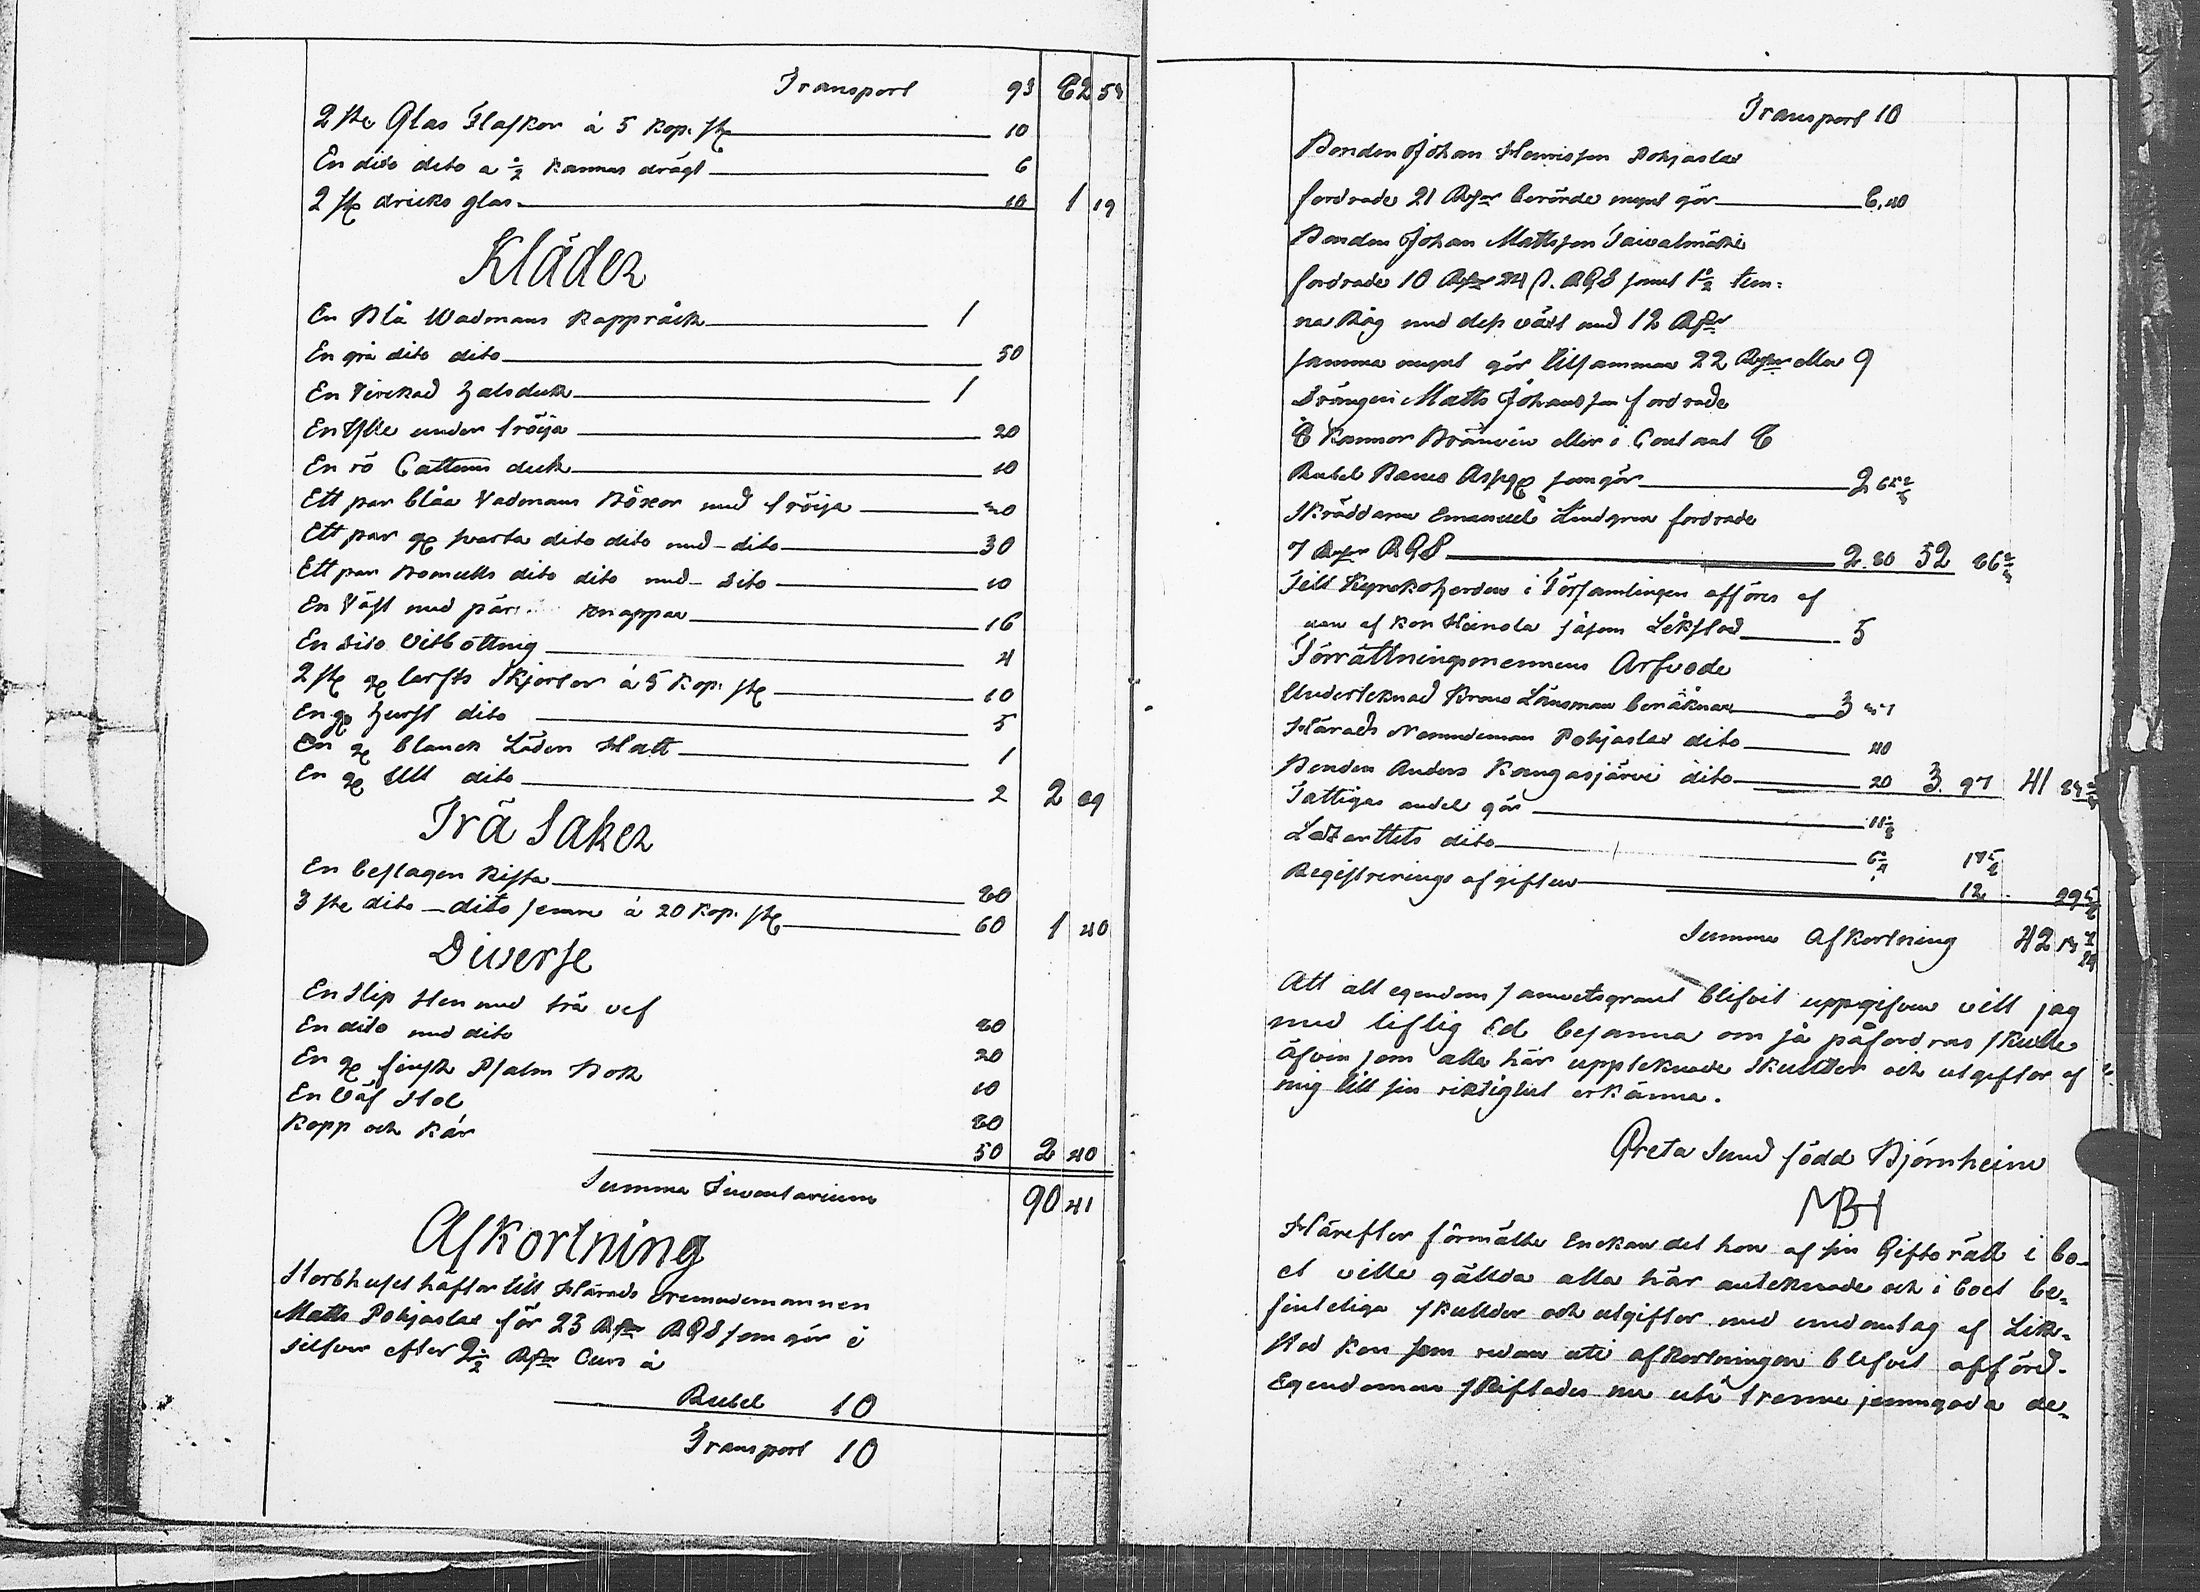 Transport 93 82 53
2 st Glas Flaskor à 5 Kop. st 10
En dito dito a ½ Kannas drägt 6
2 st dricks glas 10 1 19
Kläder
En Blå Wadmans Kappråck 1
En grå dito dito 50
En Virckad Halsduk 1
En Ylle under tröija 20
En rö Cattuns duk 10
Ett par blåa Vadmans Böxor med tröija 40
Ett par g svarta dito dito med dito 30
Ett par Bomulls dito dito med dito 10
En Väst med knappar 16
En dito Vitbottnig 4
2 st g lärfts Skjortor à 5 Kop. st 10
En g Hurst dito 5
En g blanck Läder Hatt 1
En g Ull dito 2 2 89
Trä Saker
En beslagen Kista 80
3 st dito dito semre à 20 Kop. st 60 1 40
Diverse
En Slip Sten med trä vef 80
En dito med dito 20
En g finsk Psalm Bok 10
En Väf Stol 80
Kopp och Kär 50 2 40
Summa Inventarium 90 41
Afkortning
Sterbhuset häftar till Härads Nemndemannen
Matts Pohjaslax för 23 R BGS som gör i
silfver efter 2½ R Curs à
Rubel 10
Transport 10
Transport 10
Bonden Johan Henrisson Pohjaslax
fordrade 21 R berörde mynt gör 8.40
Bonden Johan Mattsson Taivalmäki
fordrade 10 R 24 s. RGS samt 1½ tun-
na Råg med dess värt med 12 R
samma mynt gör tillsamman 22 R eller 9
Drängen Matts Johansson fordrade
8 Kannor Bränvin eller i Contant 8
Rubel Banco Assg som gör 2
Skräddaren Emanuel Lindgren fordrade
7 R RGS 2.80 32 86
Till Kyrckoherden i Församlingen afföres af
en af kon Heinola såsom Likstod 5
Förrättningsmennens Arfvode
Undertecknad Krono Länsman beräknar 3
Härads Nemndeman Pohjaslax dito 40
Bonden Anders Kangasjärvi dito 20 3. 97 41
Fattigas andel gör
Lazarettets dito
Registrerings afgiften 12
Summa Afkortning 42
Att all egendom samvetsgrant blifvit uppgifven vill jag
med liflig Ed besanna om så påfordras skulle
äfven som alla här upptecknade Skullder och utgifter af
mig till sin riktighet erkänna.
Greta Sund född Björnheim
MBH
Härefter förmälte Enckan det hon af sin Giftorätt i bo-
et ville gällda alla här antecknade och i boet be-
finteliga skullder och utgifter med undantag af Lik-
stod Kon som redan uti afkortningen blifvit afförd.
Egendomen skiftades nu uti trenne jemngoda de-